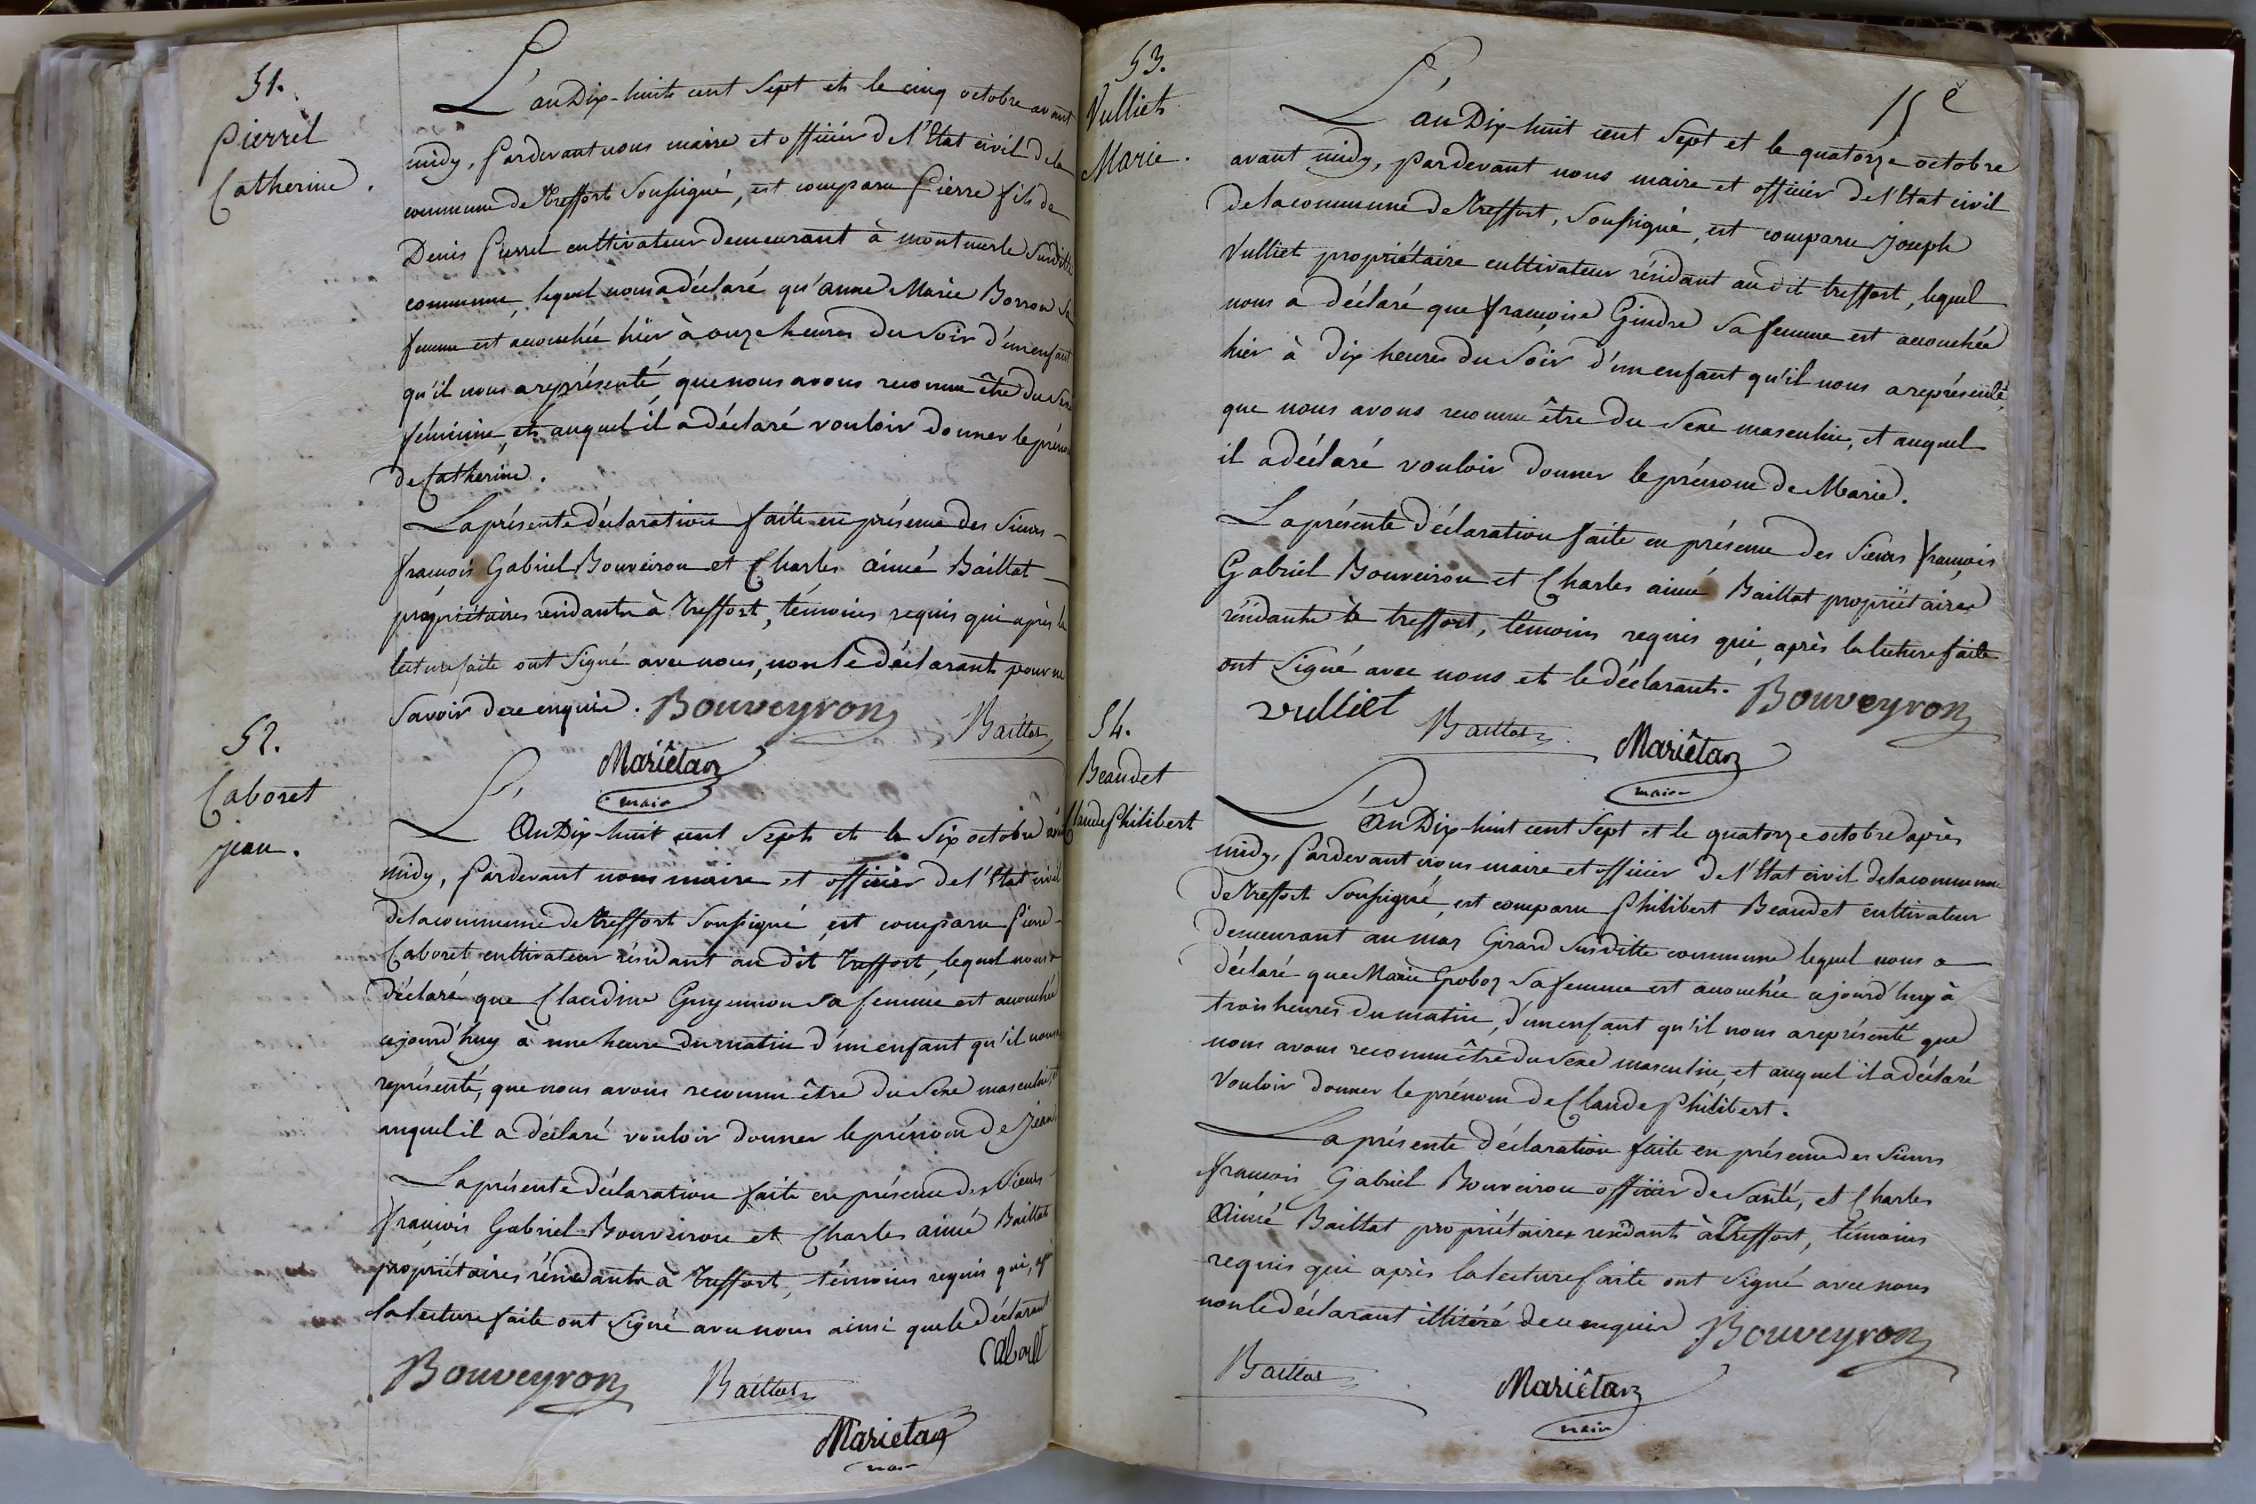 51.
Pierrel
Catherine.
L'an Dix-huit cent Sept et le cinq octobre avant
midy, Pardevant nous maire et officier de l'Etat civil de la
commune de Treffort Soussigné, est comparu Pierre fils de
Denis Pierrel cultivateur demeurant à montmerle Susditte
commune, lequel nous a déclaré qu'anne Marie Borron Sa
femme est accouchée hier à onze heures du Soir d'un enfant
qu'il nous a représenté, que nous avons reconnu être du Sexe
féminine, et auquel il a déclaré vouloir donner le prénom
de Catherine.
La présente déclaration faite en présence des Sieurs
françois Gabriel Bouveiron et Charles aimé Baillat
propriétaires résidants à Treffort, témoins requis qui après la
lecture faite ont Signé avec nous, non le déclarant pour ne
Savoir de ce enquis. Bouveyron
Baillat
Mariétan
maire
52.
Caboret
jean.
L'An Dix-huit cent Sept et le Six octobre avant
midy, Pardevant nous maire et officier de l'Etat civil
de la commune de Treffort Soussigné, est comparu Pierre
Caboret cultivateur résidant au dit Treffort, lequel nous a
déclaré que Claudine Guyennon Sa femme est accouchée
cejourd'huy à une heure du matin d'un enfant qu'il nous a
représenté, que nous avons reconnu être du Sexe masculin et
auquel il a déclaré vouloir donner le prénom de Jean
La présente déclaration faite en présence des Sieurs
françois Gabriel Bouveiron et Charles aimé Baillat
propriétaires résidants à Treffort, témoins requis qui, après
la lecture faite ont Signé avec nous ainsi que le déclarant
Bouveyron
Baillat
Marietan
53.
Vulliet
Marie.
L'an Dix-huit cent Sept et le quatorze octobre
avant midy, Pardevant nous maire et officier de l'Etat civil
de la commune de Treffort, Soussigné, est comparu Joseph
Vulliet propriétaire cultivateur résidant au dit treffort, lequel
nous a déclaré que françoise Gindre Sa femme est accouchée
hier à dix heures du Soir d'un enfant qu'il nous a représenté,
que nous avons reconnu être du Sexe masculin, et auquel
il a déclaré vouloir donner le prénom de Marie.
La présente déclaration faite en présence des Sieurs françois
Gabriel Bouveiron et Charles aimé Baillat propriétaires
résidants à treffort, témoins requis qui, après la lecture faite
ont Signé avec nous et le déclarant. Bouveyron
vulliet
Baillat
Mariêtan
maire
54.
Beaudet
Claude Philibert
L'An Dix-huit cent Sept et le quatorze octobre après
midy, Pardevant nous maire et officier de l'Etat civil de la commune
de Treffort Soussigné, est comparu Philibert Beaudet cultivateur
demeurant au mas Girard Susditte commune lequel nous a
déclaré que Marie Groboz Sa femme est accouchée cejourd'huy à
trois heures du matin, d'un enfant qu'il nous a représenté que
nous avons reconnu être du Sexe masculin, et auquel il a déclaré
Vouloir donner le prénom de Claude Philibert.
La présente déclaration faite en présence des Sieurs
françois Gabriel Bouveiron officier de Santé, et Charles
Aimé Baillat propriétaires residants à Treffort, témoins
requis qui après la lecture faite ont Signé avec nous
non le déclarant illitéré de ce enquis Bouveyron
Baillat
Mariêtan
maire